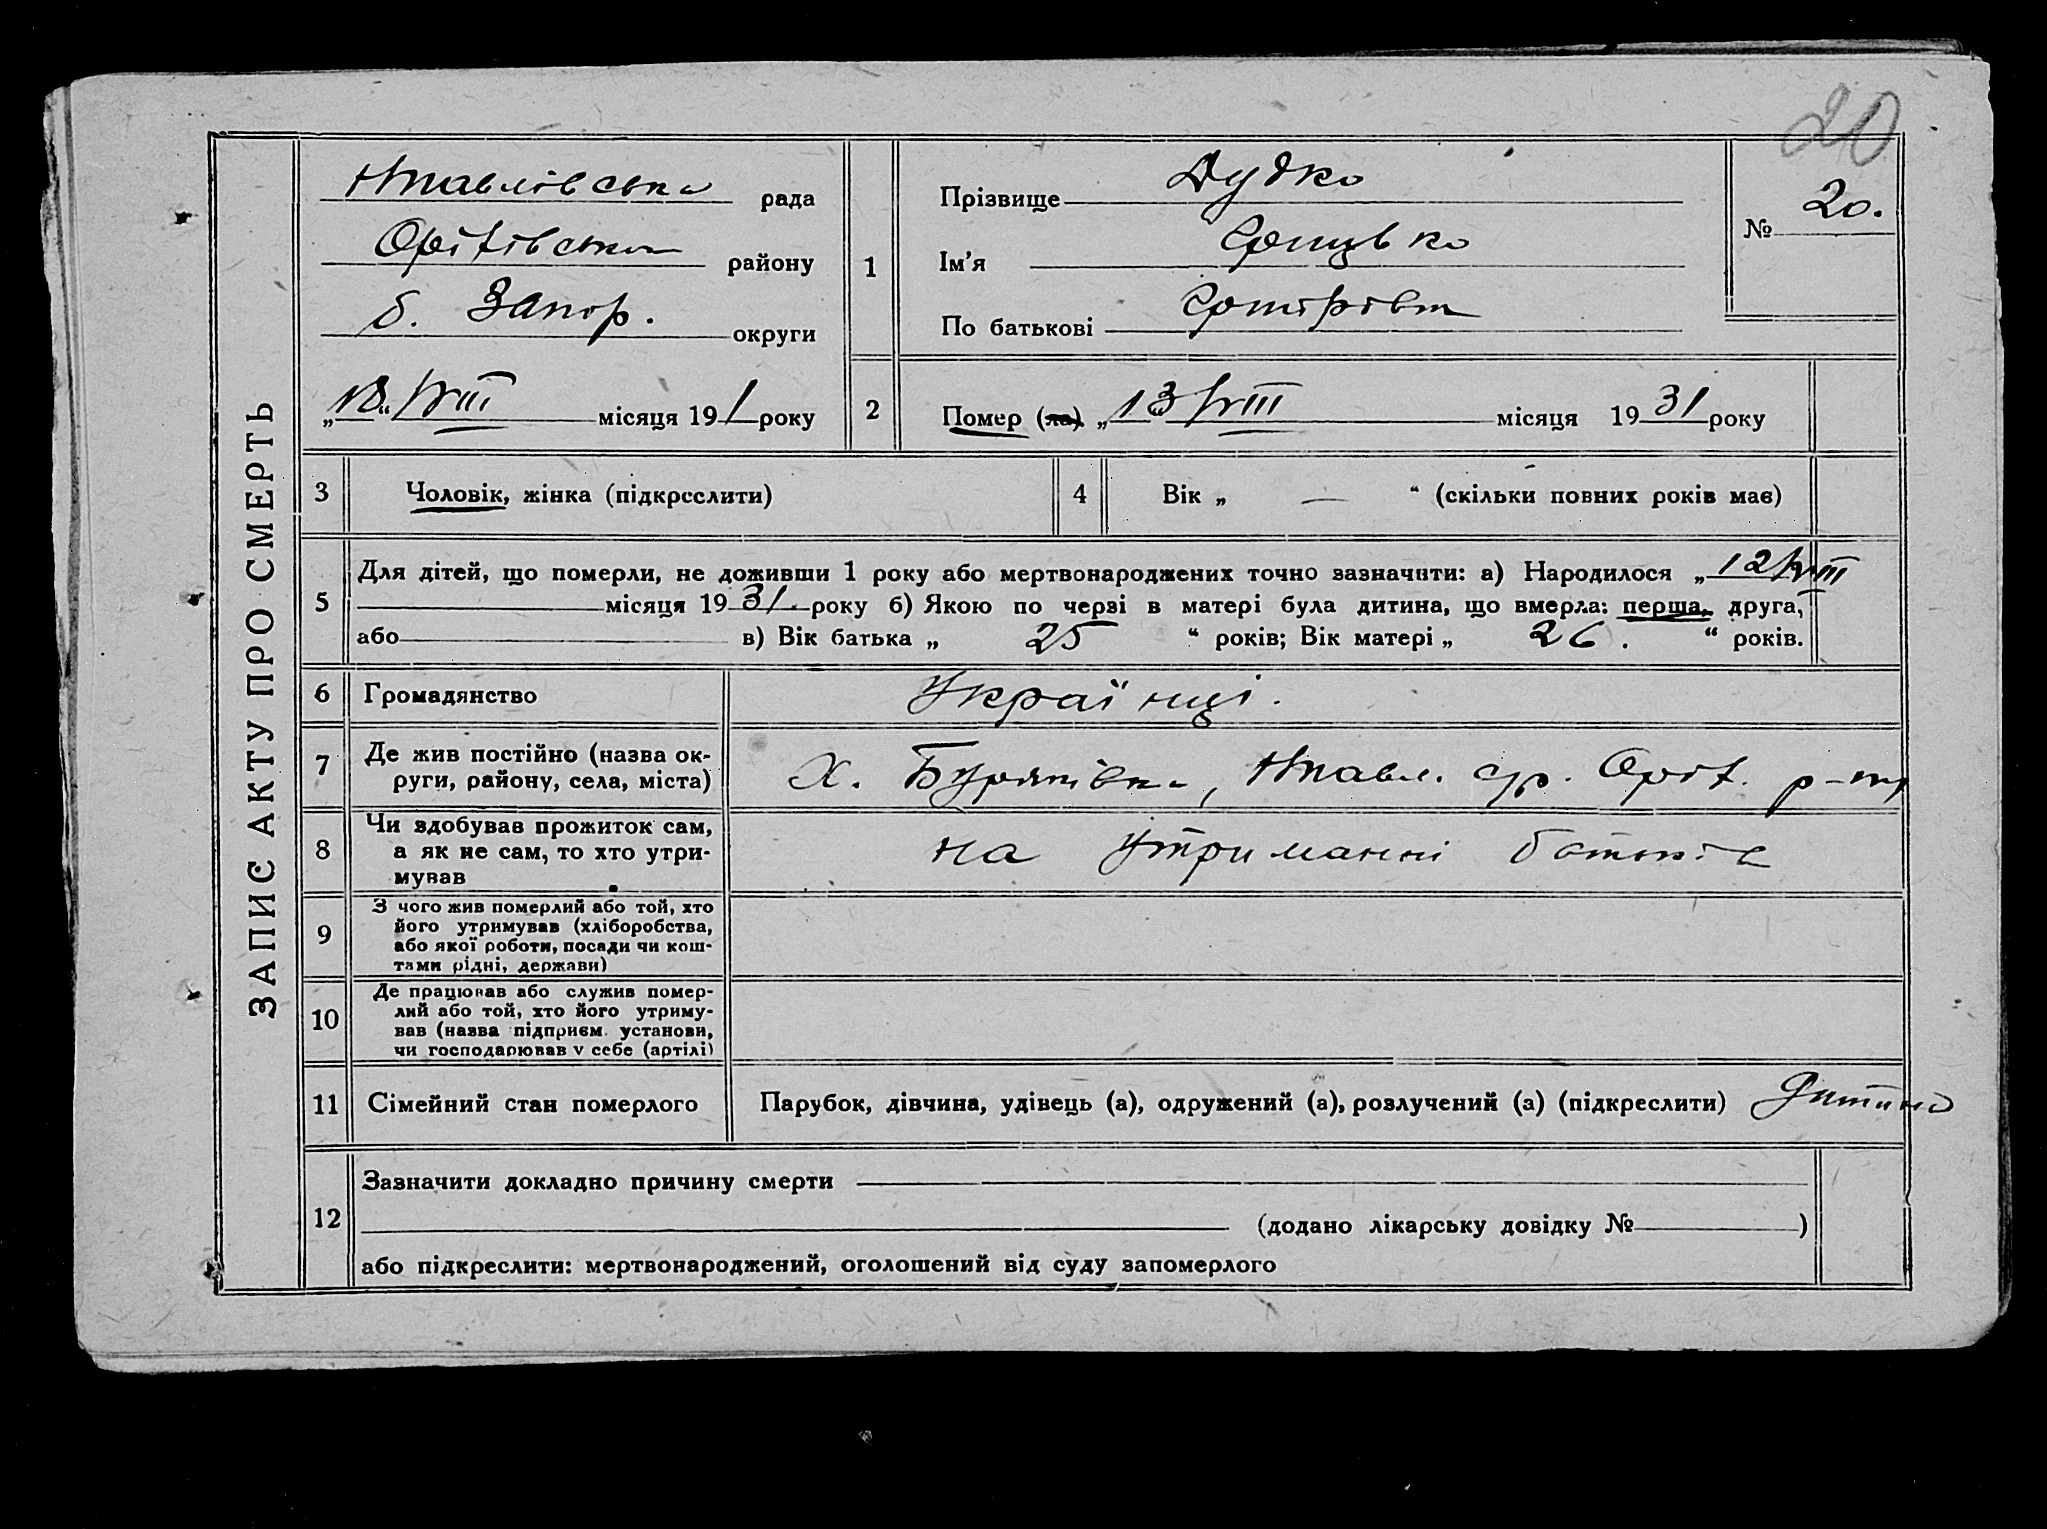 20
ЗАПИС АКТУ ПРО СМЕРТЬ
Нпавлівська рада
Оріхівськ району
б. Запор. округи
„18“ VIII місяця 191 року
1
Прізвище Дудко
Ім'я
По батькові
№ 20.
2
Помер (ла) „13“ VIII місяця 1931 року
3
Чоловік, жінка (підкреслити)
4
Вік „ — “ (скільки повних років має)
5
Для дітей, що померли, не доживши 1 року або мертвонароджених точно зазначити: а) Народилося „12 VIII
місяця 1931. року б) Якою по черзі в матері була дитина, що вмерла: перша, друга,
або в) Вік батька „ 25 “ років; Вік матері „ 26. “ років.
6
Громадянство
Українці.
7
Де жив постійно (назва ок-
руги, району, села, міста)
Х. Буряківка, Нпавл. с/р. Оріх. р-ну
8
Чи здобував прожиток сам,
а як не сам, то хто утри-
мував
на утриманні батьків
9
З чого жив померлий або той, хто
його утримував (хліборобства,
або якої роботи, посади чи кош-
тами рідні, держави)
10
Де працював або служив помер-
лий або той, хто його утриму-
вав (назва підприєм. установи,
чи господарював у себе (артілі)
11
Сімейний стан померлого
Парубок, дівчина, удівець (а), одружений (а), розлучений (а) (підкреслити) Дитина
12
Зазначити докладно причину смерти
(додано лікарську довідку № )
або підкреслити: мертвонароджений, оголошений від суду запомерлого